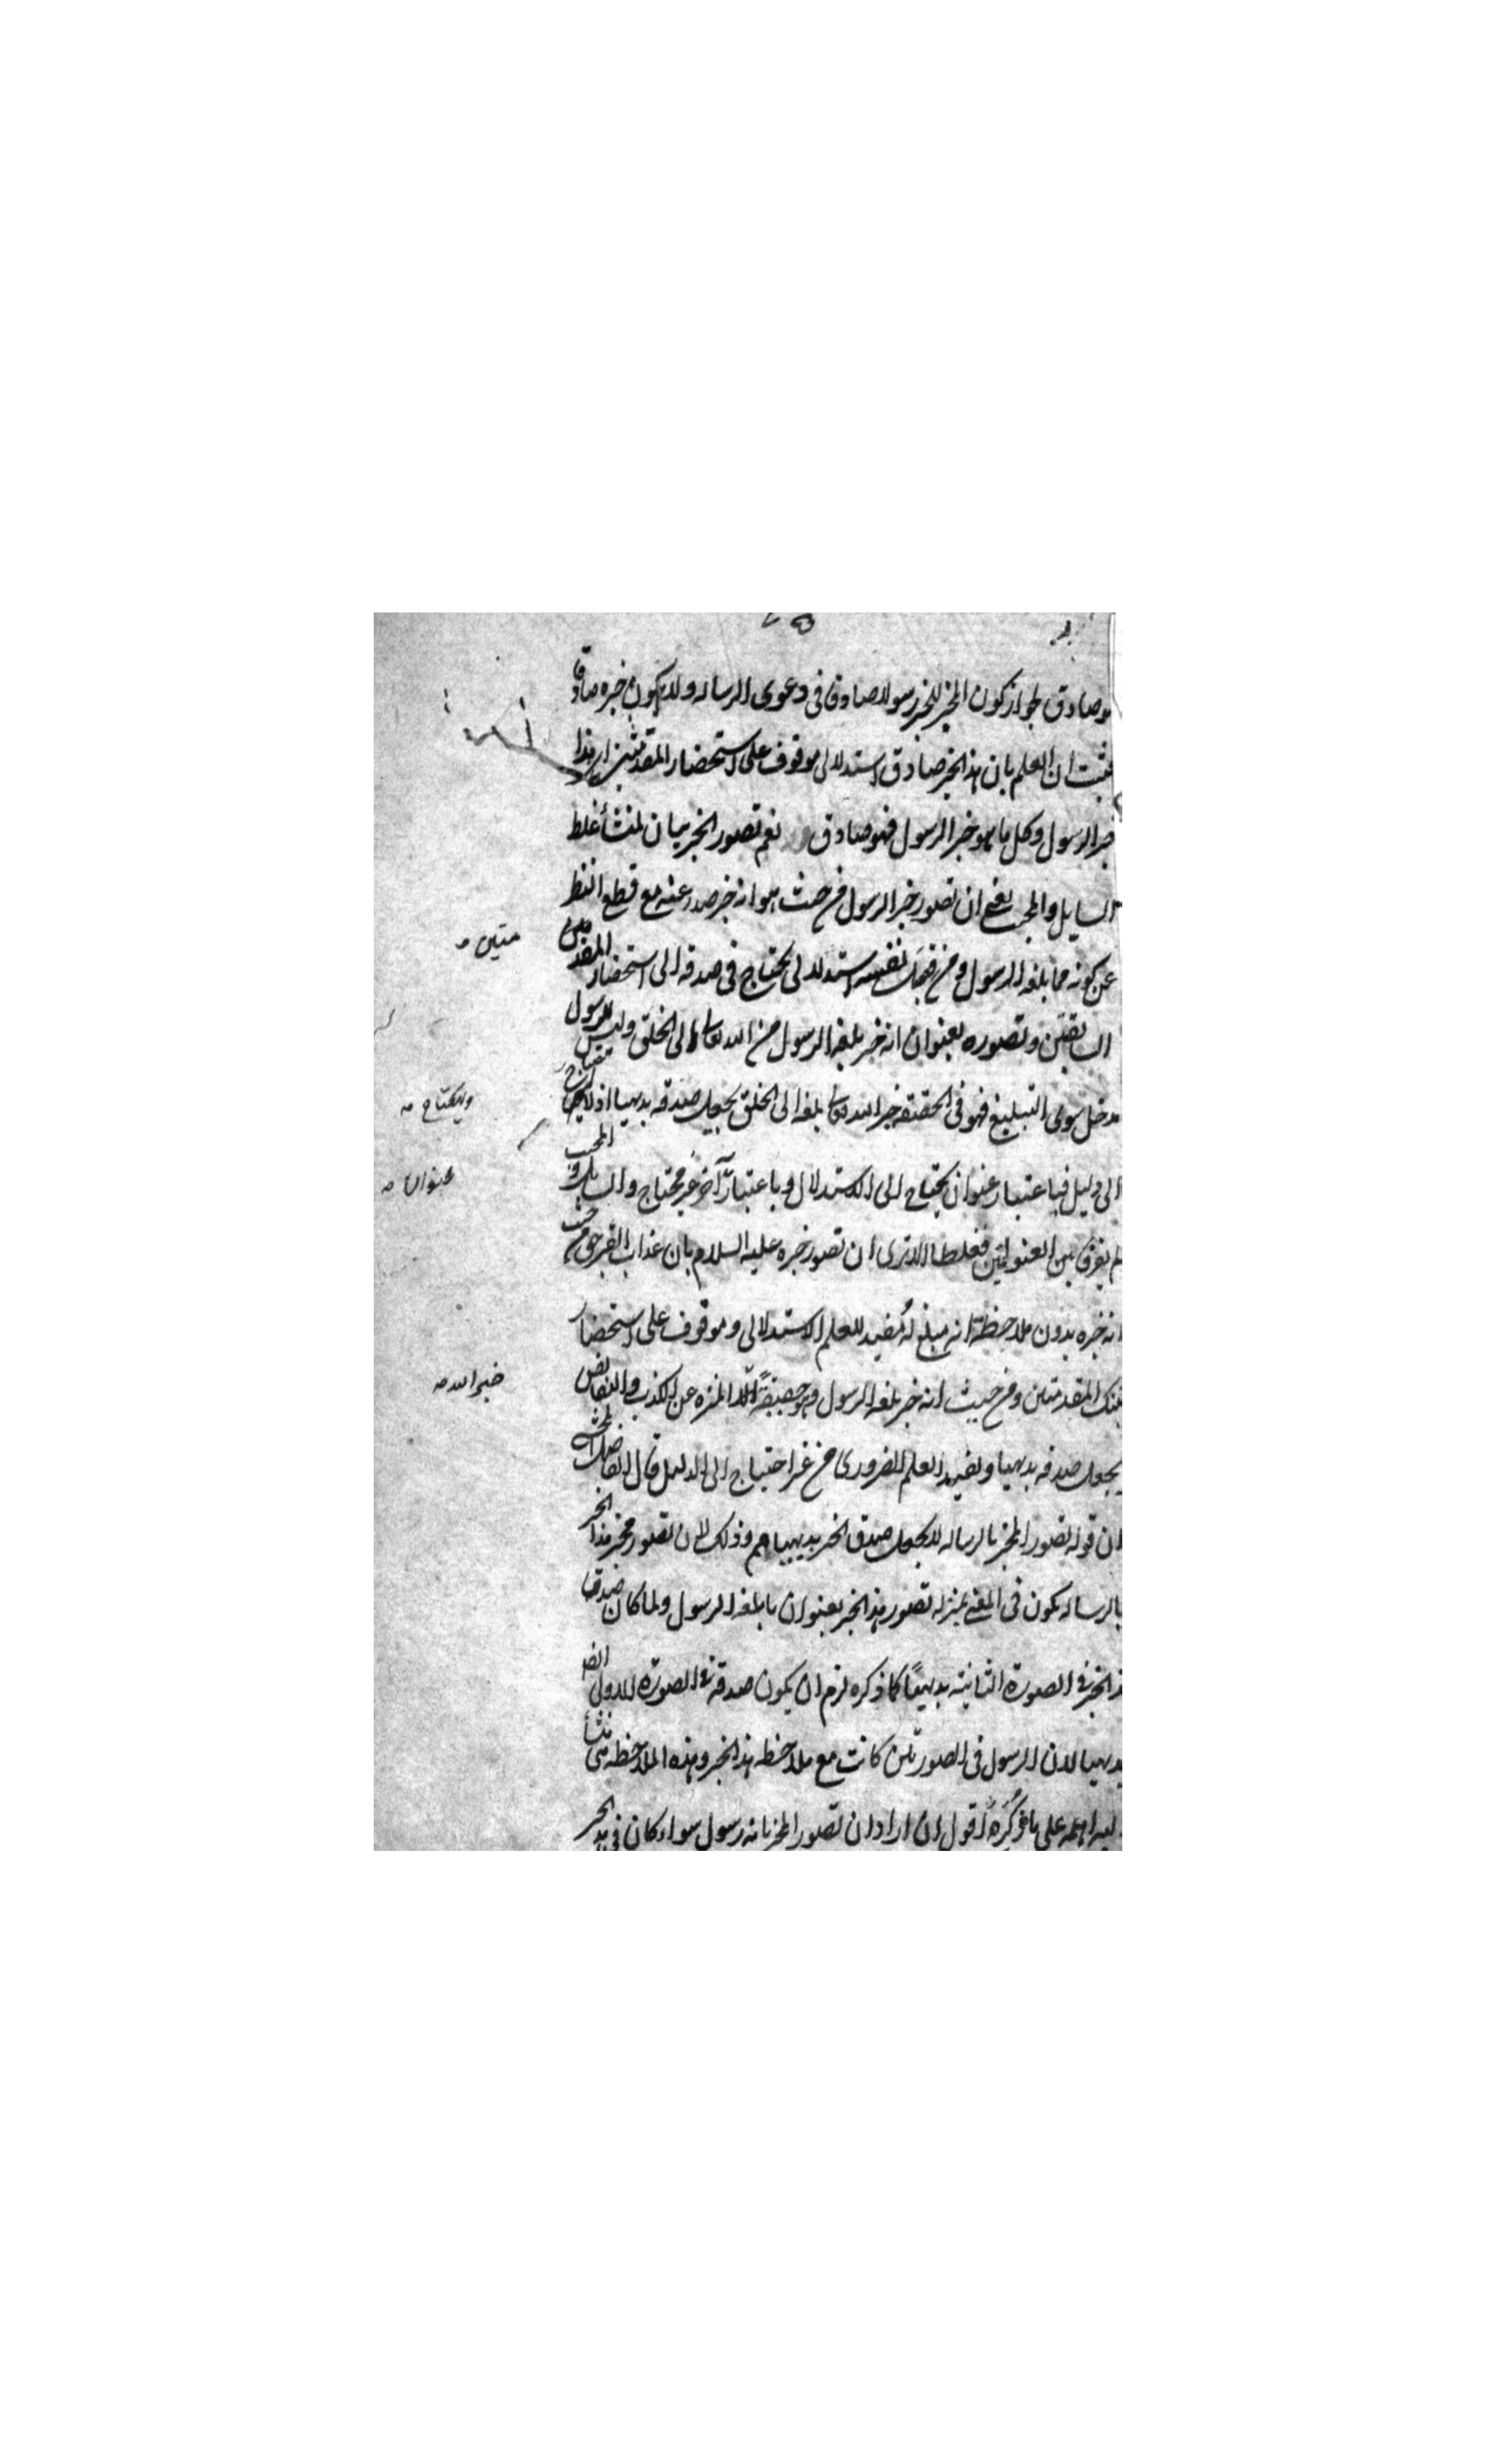 هو صادق لجواز كون المخبر للخبر رسولا صادقا فى دعوى الرساله ولا يكون خبره صادقا
فثبت ان العلم بان هذا الخبر صادق استدلالى موقوف على استحضار المقدمتين اى هذا
خبر الرسول وكل ما هو خبر الرسول فهو صادق نعم تصور الخبر بيان لمنشأ غلط
السايل والمجيب يعنى ان تصور خبر الرسول من حيث هو انه خبر صدر عنه مع قطع النظر
عن كونه مما بلغه الرسول ومن نفسه استدلالى يحتاج فى صدقه الى استحضار المقدمتين
متين صه
السابقتين وتصوره بعنوان انه خبر بلغه الرسول من الله تعالى الى الخلق وليس للرسول
مدخل سوى التبليغ فهو فى الحقيقة خبر الله تعالى بلغه الى الخلق يجعل صدقه بديهيا اذ لا يحتاج
ويحتاج صه
الى دليل فباعتبار عنوان يحتاج الى الاستدلال وباعتبار آخر غير محتاج والسايل والمجيب
عنوان صه
لم يفرق بين العنوانين فغلطا الا ترى ان تصور خبره عليه السلام بان عذاب القبر حق من حيث
انه خبره بدون ملاحظة انه مبلغ له مفيد للعلم الاستدلالى وموقوف على استحضار
تينك المقدمتين ومن حيث انه خبر بلغه الرسول وهو حقيقةً الله المنزه عن الكذب والنقائص
خبر الله صه
يجعل صدقه بديهيا ويفيد العلم الضرورى من غير احتياج الى الدليل قال الفاضل المحشى
ان قوله تصور المخبر بالرساله لا يجعل صدق الخبر بديهيا هم وذلك لان تصور مخبر هذا الخبر
بالرساله يكون فى المعنى بمنزله تصور هذا الخبر بعنوان ما بلغه الرسول ولما كان صدق
هذا الخبر فى الصورة الثانيه بديهيًا كما ذكره لزم ان يكون صدقه فى الصورة الاولى ايضا
بديهيا لان الرسول فى الصورتين كانت مع ملاحظه هذا الخبر وهذه الملاحظه هى منشأ
البداهه على ما ذكره اقول ان اراد ان تصور المخبر بانه رسول سواء كان فى هذا الخبر